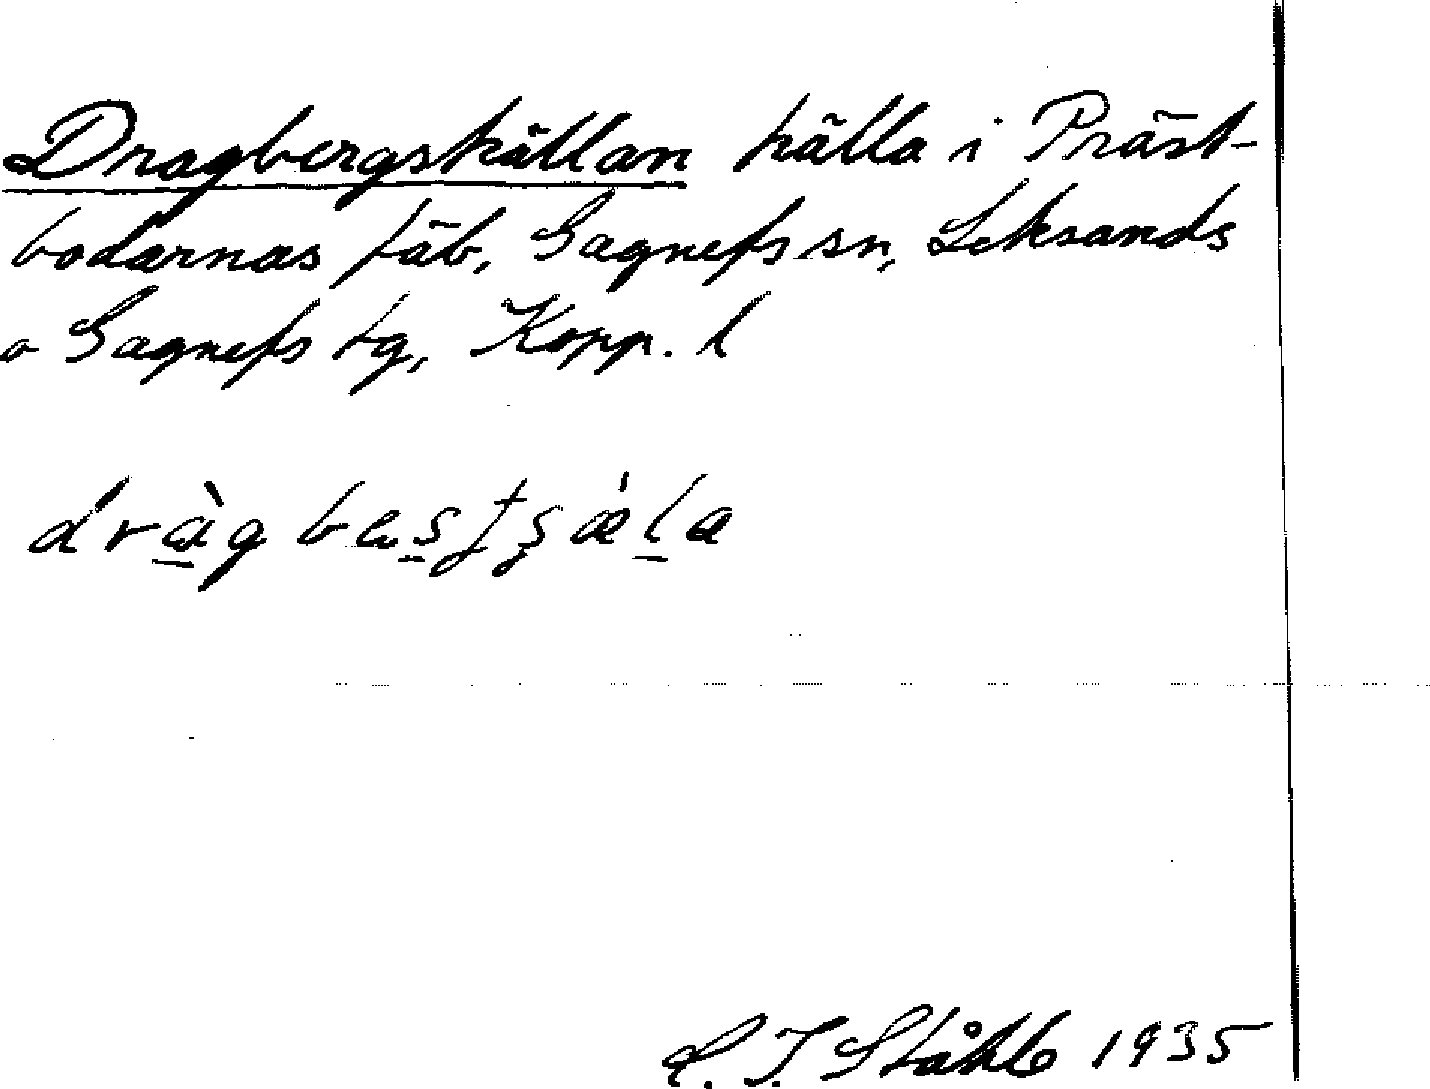 Dragbergskällan källa i Präst-
bodarnas fäb, Gagnefs sn, Leksands
o Gagnefs tg, Kopp. l
H. J. Ståhl 1935